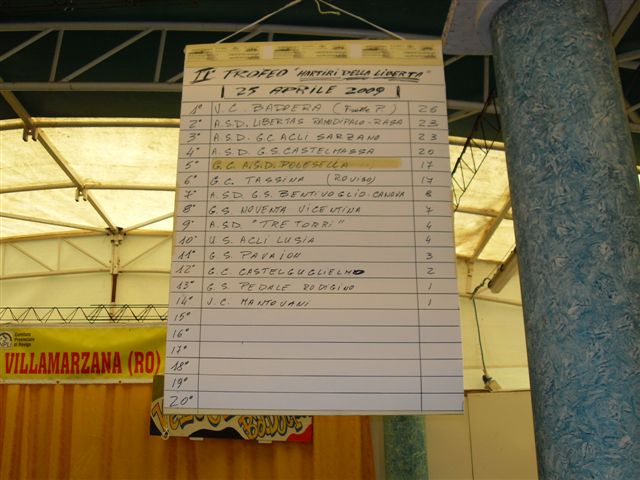 IIº TROFEO "MARTIRI DELLA LIBERTA'"
25 APRILE 2009
1º V.C. BADOERA 26
2º A.S.D. LIBERTAS RAMODIPALO-RASA 23
3º A.S.D. G.C. ACLI SARZANO 23
4º A.S.D. G.S. CASTELMASSA 20
5º G.C. A.S.D. POLESELLA 17
6º G.C. TASSINA (ROVIGO) 17
7º A.S.D. G.S. BENTIVOGLIO-CANOVA 8
8º G.S. NOVENTA VICENTINA 7
9º A.S.D. "TRE TORRI" 4
10º U.S. ACLI LUSIA 4
11º G.S. PAVAION 3
12º G.C. CASTELGUGLIELMO 2
13º G.S. PEDALE RODIGINO 1
14º V.C. MANTOVANI 1
15º
16º
17º
18º
19º
20º
Comitato
Provinciale
di Rovigo
VILLAMARZANA (RO)